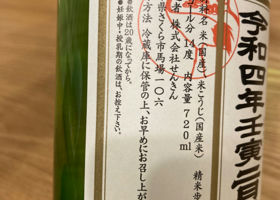 令和四年壬寅二百
米(国産)、米こうじ(国産米) 精米歩
ール分 14度 内容量 720ml
者 株式会社せんきん
県さくら市馬場一〇六
方法 冷蔵庫に保管の上、お早めにお召し上が
●飲酒は20歳になってから。
●妊娠中・授乳期の飲酒は、お控え下さい。